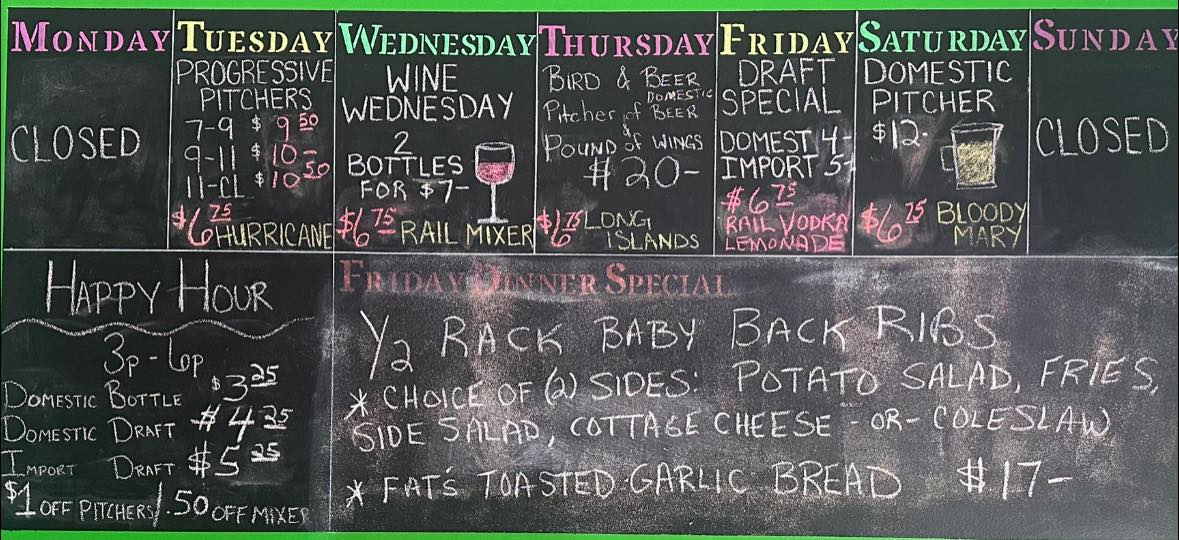 MONDAY
CLOSED
TUESDAY
PROGRESSIVE
PITCHERS
7-9 $ 9 50
9-11 $ 10-
11-CL $ 10 50
$6 75 HURRICANE
WEDNESDAY
WINE
WEDNESDAY
2
BOTTLES
FOR $7-
$6 75 RAIL MIXER
THURSDAY
BIRD & BEER
DOMESTIC
Pitcher of BEER
&
POUND of WINGS
$20-
$6 75 LONG
ISLANDS
FRIDAY
DRAFT
SPECIAL
DOMEST 4-
IMPORT 5-
$6 75
RAIL VODKA
LEMONADE
SATURDAY
DOMESTIC
PITCHER
$12-
$6 75 BLOODY
MARY
SUNDAY
CLOSED
HAPPY HOUR
3p-6p
DOMESTIC BOTTLE $3 25
DOMESTIC DRAFT $4 25
IMPORT DRAFT $5 25
$1 OFF PITCHERS/.50 OFF MIXER
FRIDAY DINNER SPECIAL
1/2 RACK BABY BACK RIBS
* CHOICE OF (2) SIDES: POTATO SALAD, FRIES,
SIDE SALAD, COTTAGE CHEESE -OR- COLESLAW
* FAT'S TOASTED GARLIC BREAD $17-